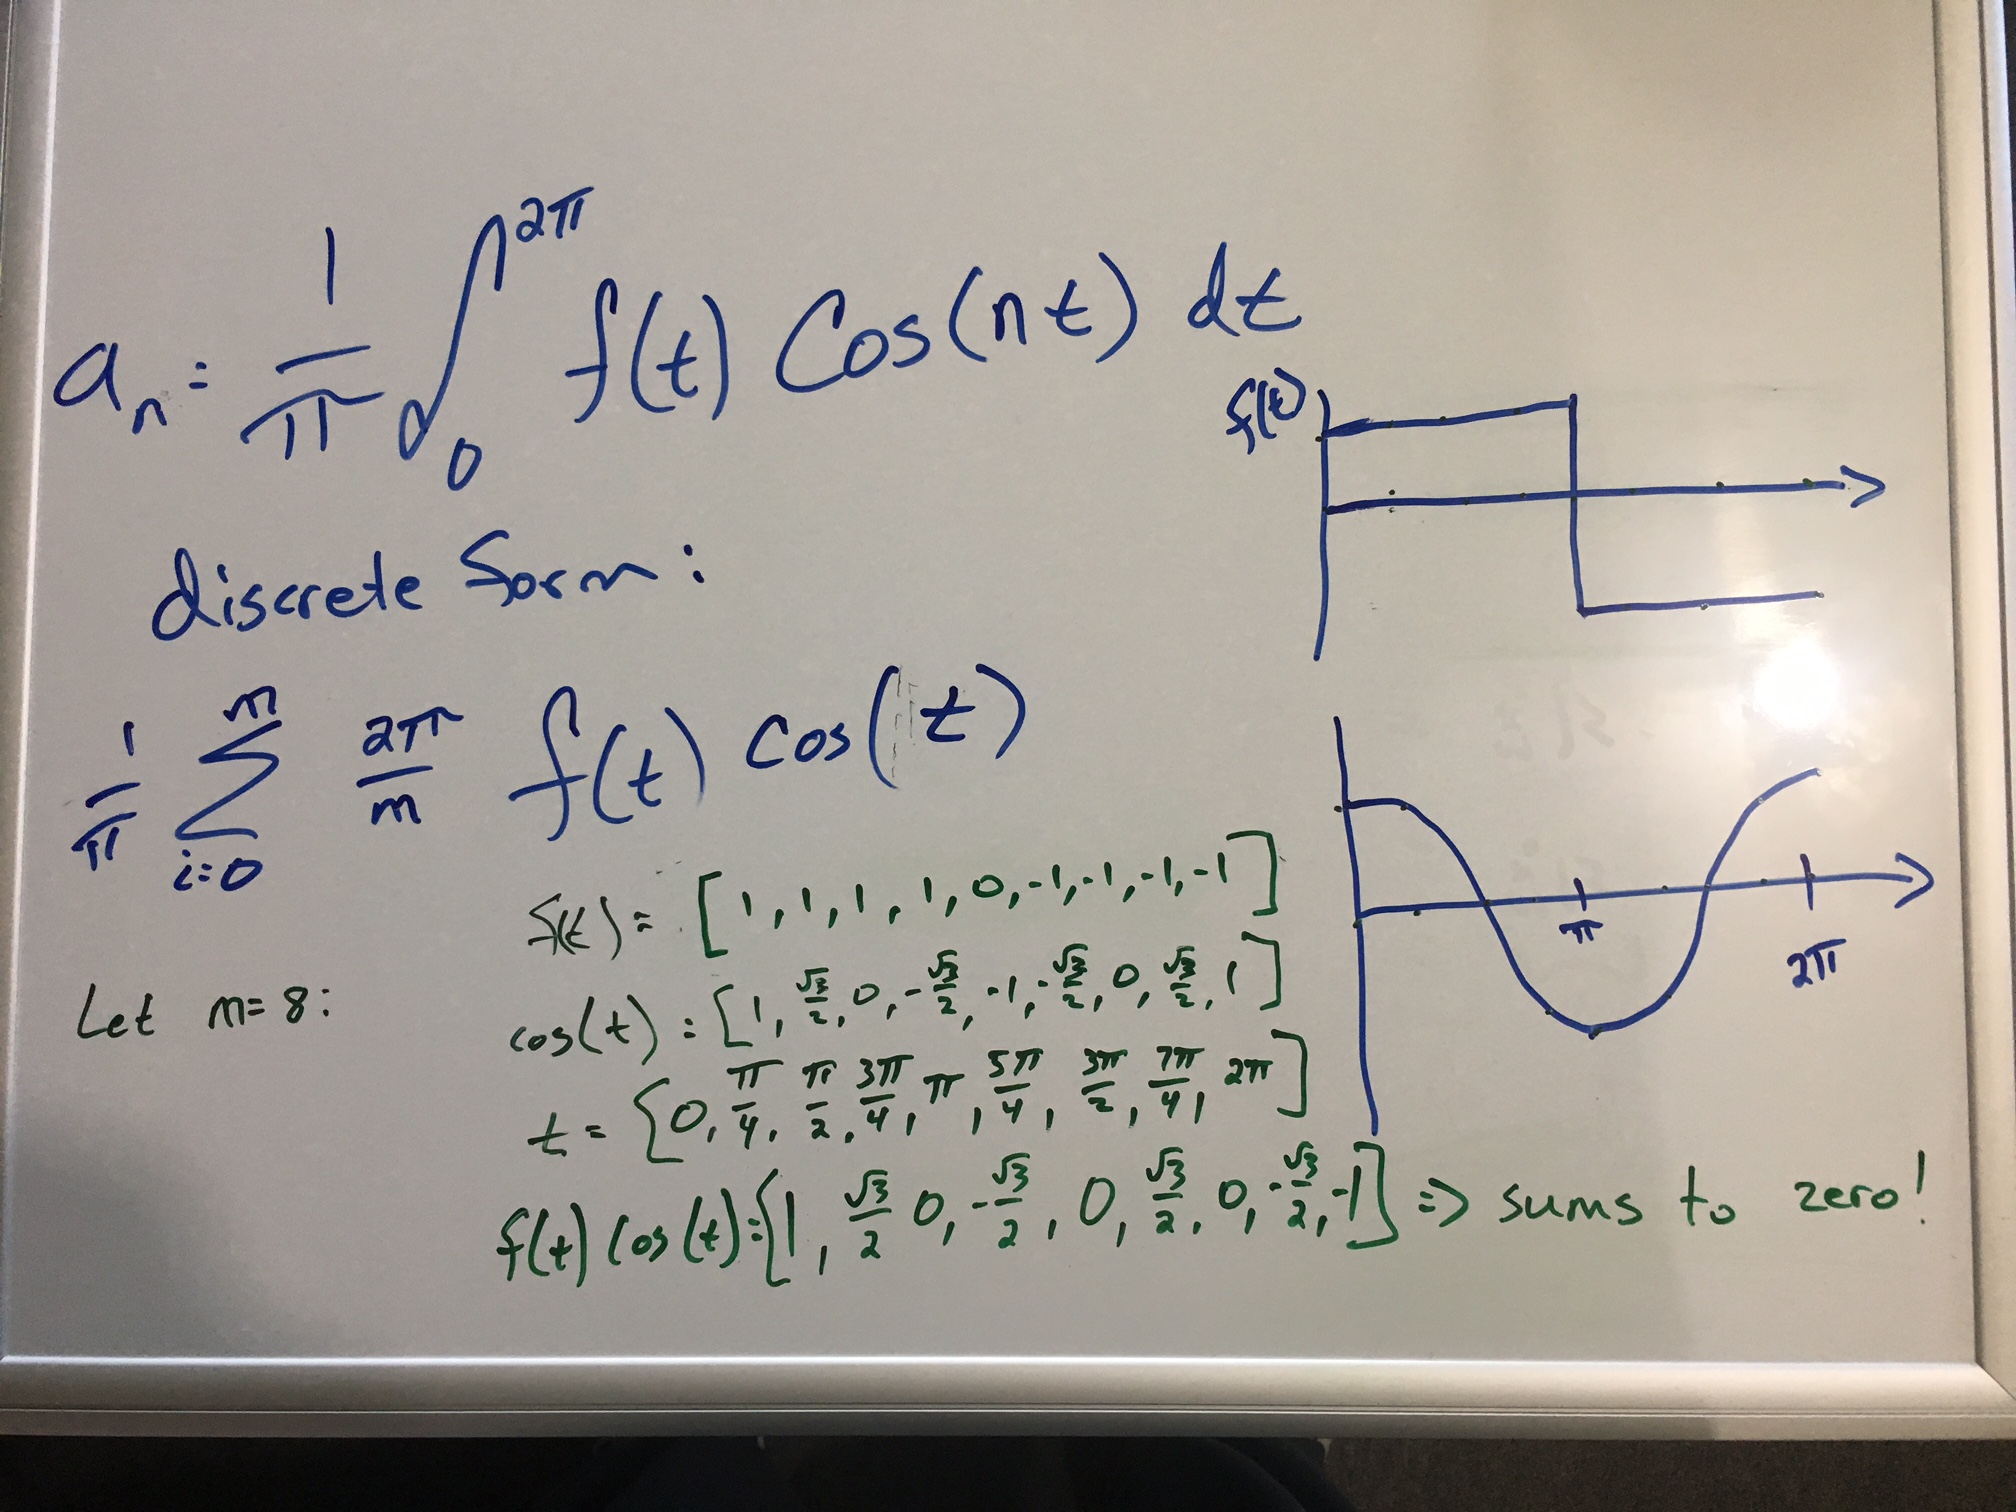 aₙ = 1/π ∫₀^2π f(t) Cos(nt) dt
f(t)
discrete form:
1/π Σ_{i=0}^{m} 2π/m f(t) cos(t)
Let m=8:
f(t) = [1, 1, 1, 1, 0, -1, -1, -1, -1]
cos(t) = [1, √3/2, 0, -√3/2, -1, -√3/2, 0, √3/2, 1]
t = [0, π/4, π/2, 3π/4, π, 5π/4, 3π/2, 7π/4, 2π]
f(t) cos(t) = [1, √3/2 0, -√3/2, 0, √3/2, 0, -√3/2, -1] => sums to zero!
π
2π